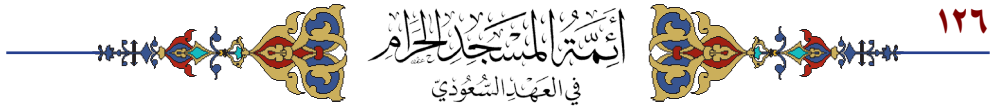 ١٢٦
أَئِمَّةُ المَسْجِدِ الحَرَامِ
فِي العَهْدِ السُّعُودِيّ